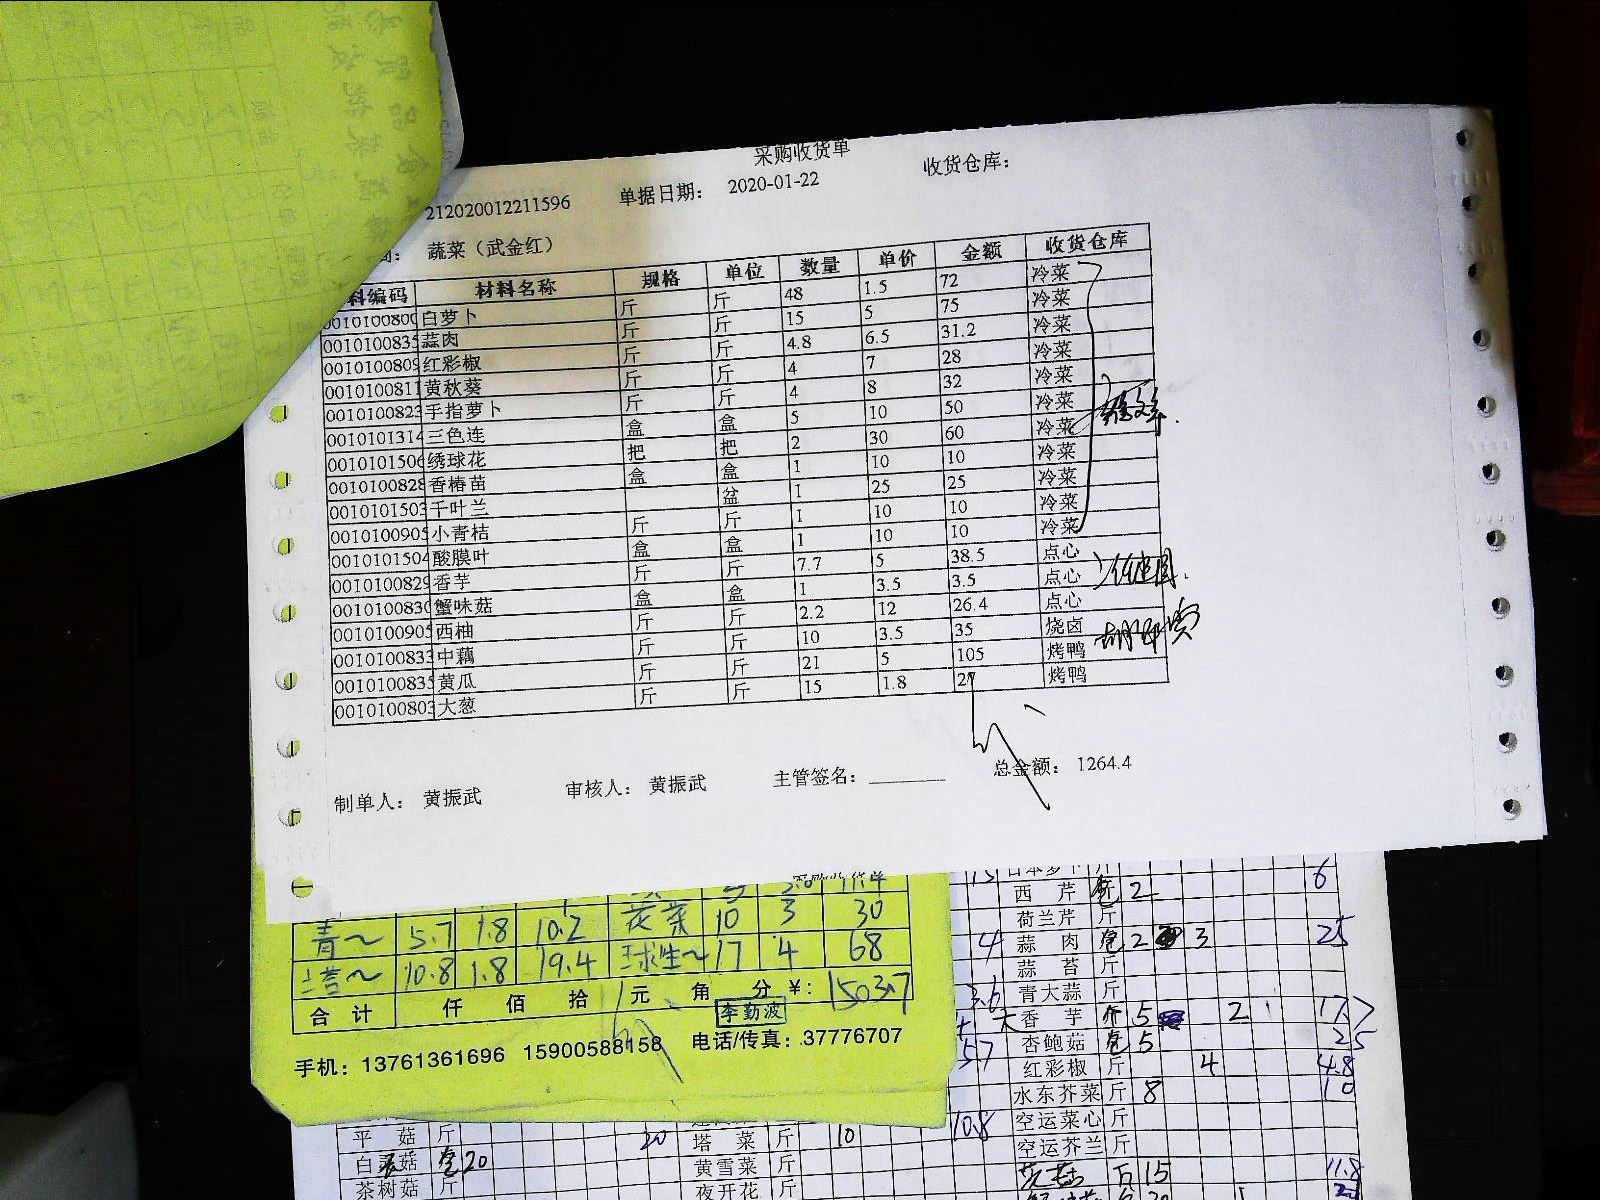 采购收货单
212020012211596 单据日期： 2020-01-22 收货仓库：
蔬菜（武金红）
料编码 材料名称 规格 单位 数量 单价 金额 收货仓库
0010100800 白萝卜 斤 斤 48 1.5 72 冷菜
0010100835 蒜肉 斤 斤 15 5 75 冷菜
0010100809 红彩椒 斤 斤 4.8 6.5 31.2 冷菜
0010100811 黄秋葵 斤 斤 4 7 28 冷菜
0010100823 手指萝卜 斤 斤 4 8 32 冷菜
0010101314 三色连 盒 盒 5 10 50 冷菜
0010101506 绣球花 把 把 2 30 60 冷菜
0010100828 香椿苗 盒 盒 1 10 10 冷菜
0010101503 千叶兰 盆 1 25 25 冷菜
0010100905 小青桔 斤 斤 1 10 10 冷菜
0010101504 酸膜叶 盒 盒 1 10 10 冷菜
0010100829 香芋 斤 斤 7.7 5 38.5 点心
0010100830 蟹味菇 盒 盒 1 3.5 3.5 点心
0010100905 西柚 斤 斤 2.2 12 26.4 点心
0010100833 中藕 斤 斤 10 3.5 35 烧卤
0010100835 黄瓜 斤 斤 21 5 105 烤鸭
0010100803 大葱 斤 斤 15 1.8 27 烤鸭
制单人： 黄振武 审核人： 黄振武 主管签名： 总金额： 1264.4
青～ 5.7 1.8 10.2 菠菜 10 3 30
塔～ 10.8 1.8 19.4 球生～ 17 4 68
合 计 仟 佰 拾 元 角 分 ¥: 1503.7
李勤波
手机：13761361696 15900588158 电话/传真：37776707
日本萝卜 斤
西 芹 2 6
荷兰芹 斤
4 蒜 肉 包 2 3 25
蒜 苔 斤
3.6 青大蒜 斤
大 香 芋 个 5 2 17.7
5.7 杏鲍菇 包 5 25
红彩椒 斤 4 4.8
水东芥菜 斤 8 10
10.8 空运菜心 斤
空运芥兰 斤
平 菇 斤 20 塔 菜 斤 10
白灵菇 包 20 黄雪菜 斤 15 11.8
茶树菇 斤 夜开花 斤